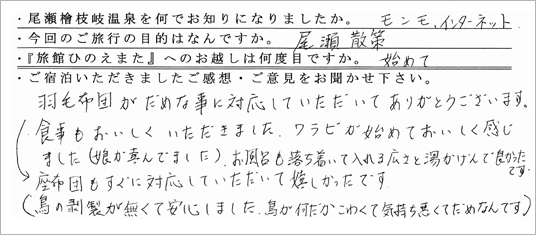 ・尾瀬檜枝岐温泉を何でお知りになりましたか。 モンモ、インターネット
・今回のご旅行の目的はなんですか。 尾瀬散策
・『旅館ひのえまた』へのお越しは何度目ですか。 始めて
・ご宿泊いただきましたご感想・ご意見をお聞かせ下さい。
羽毛布団がだめな事に対応していただいてありがとうございます。
食事もおいしくいただきました。ワラビが始めておいしく感じ
ました(娘が喜んでました)。お風呂も落ち着いて入れる広さと湯かげんで良かった
です。
座布団もすぐに対応していただいて嬉しかったです
(鳥の剥製が無くて安心しました。鳥が何だかこわくて気持ち悪くてだめなんです)